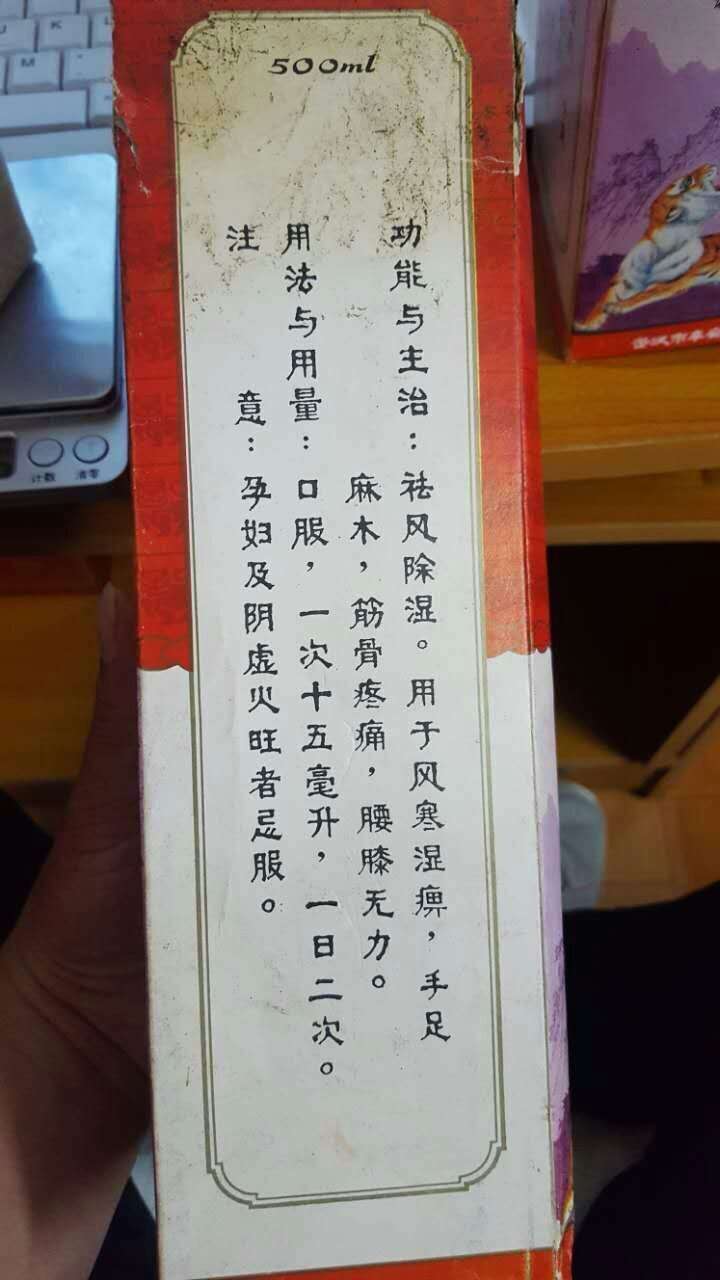 500ml
功能与主治：祛风除湿。用于风寒湿痹，手足
麻木，筋骨疼痛，腰膝无力。
用法与用量：口服，一次十五毫升，一日二次。
注意：孕妇及阴虚火旺者忌服。
计数
清零